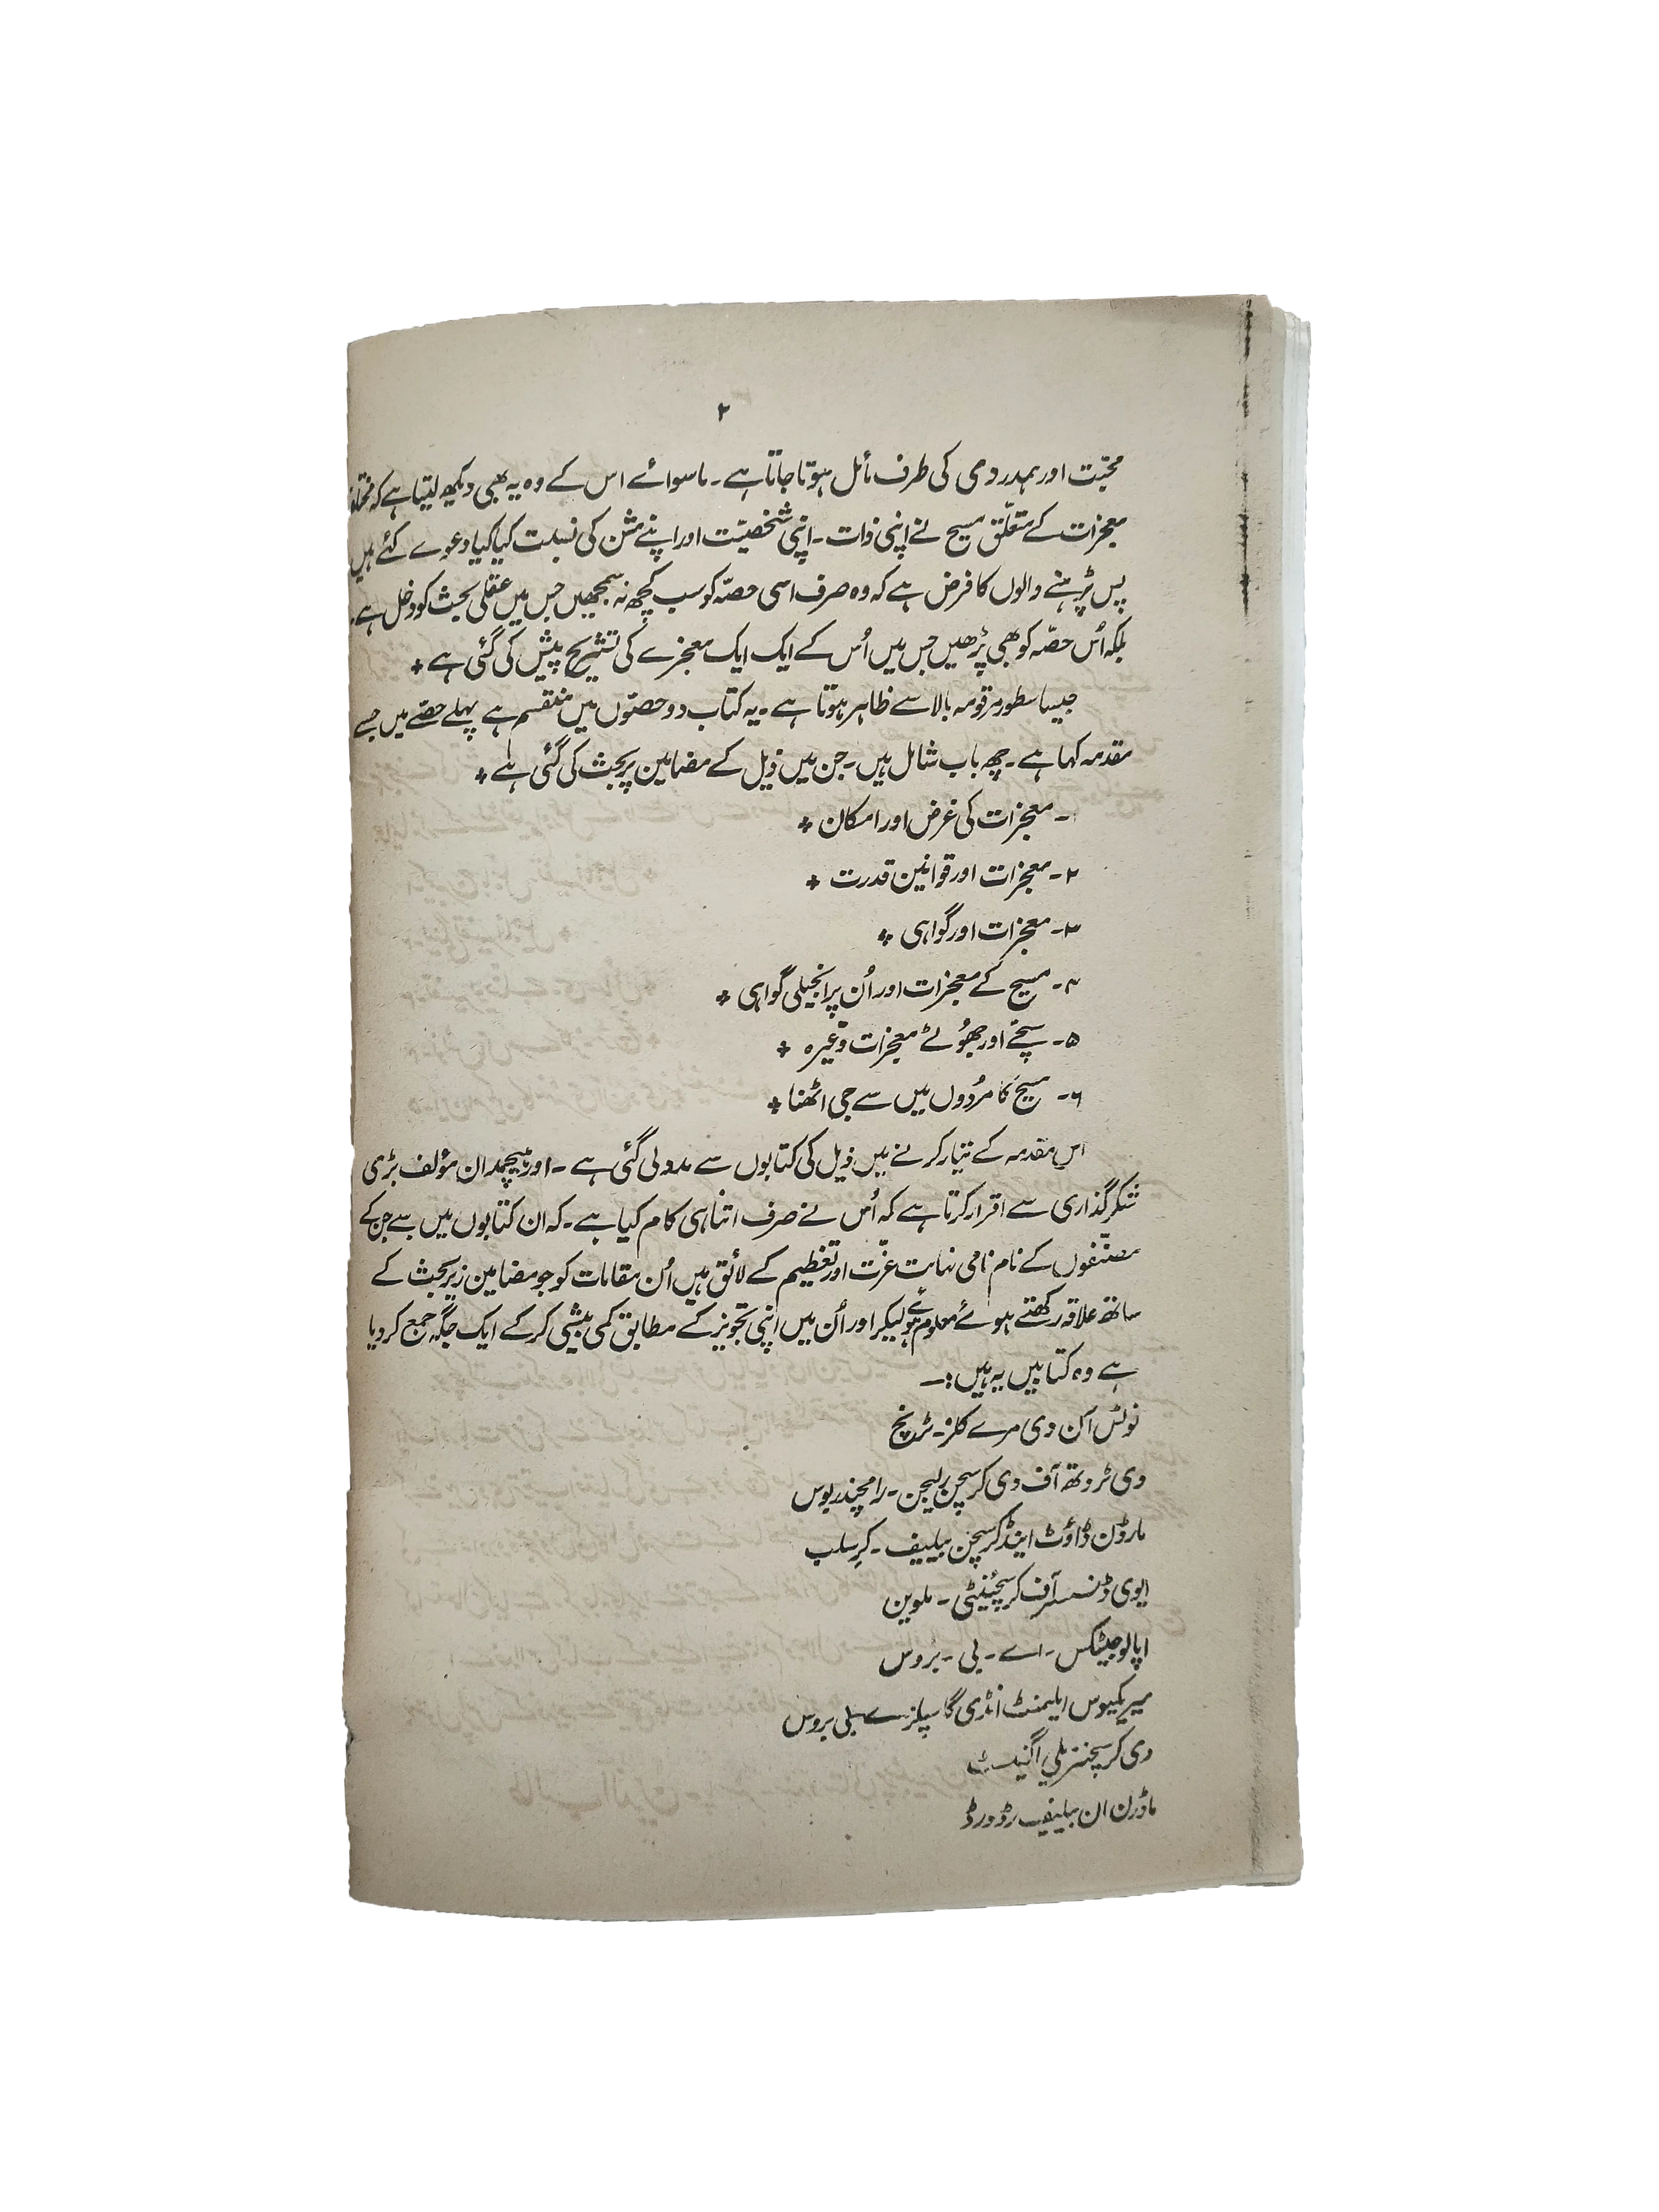 ۲
محبّت اور ہمدردی کی طرف مائل ہوتا جاتا ہے۔ ماسوائے اس کے وہ یہ بھی دیکھ لیتا ہے کہ
معجزات کے متعلّق مسیح نے اپنی ذات۔ اپنی شخصیّت اور اپنے مشن کی نسبت کیا کیا دعوے کئے ہیں
پس پڑہنے والوں کا فرض ہے کہ وہ صرف اسی حصّہ کو سب کچھ نہ سمجھیں جس میں عقلی بحث کو دخل ہے۔
بلکہ اُس حصّہ کو بھی پڑھیں جس میں اُس کے ایک ایک معجزے کی تشریح پیش کی گئی ہے +
جیسا سطور مرقومہ بالا سے ظاہر ہوتا ہے۔ یہ کتاب دو حصّوں میں منقسم ہے پہلے حصّے میں جسے
مقدمہ کہا ہے۔ چھ باب شامل ہیں۔ جن میں ذیل کے مضامین پر بحث کی گئی ہے +
۱۔ معجزات کی غرض اور امکان +
۲۔ معجزات اور قوانین قدرت +
۳۔ معجزات اور گواہی +
۴۔ مسیح کے معجزات اور اُن پر انجیلی گواہی +
۵۔ سچّے اور جھُوٹے معجزات وغیرہ +
۶۔ مسیح کا مُردوں میں سے جی اٹھنا +
اس مقدمہ کے تیار کرنے میں ذیل کی کتابوں سے مدد لی گئی ہے۔ اور ہیچمدان مؤلف بڑی
شکر گذاری سے اقرار کرتا ہے کہ اُس نے صرف اتنا ہی کام کیا ہے۔ کہ ان کتابوں میں سے جن کے
مصنّفوں کے نام نامی نہایت عزّت اور تعظیم کے لائق ہیں اُن مقامات کو جو مضامین زیر بحث کے
ساتھ علاقہ رکھتے ہوئے معلوم ہوئے لیکر اور اُن میں اپنی تجویز کے مطابق کمی بیشی کر کے ایک جگہ جمع کر دیا
ہے وہ کتابیں یہ ہیں:۔
نوٹس آن دی مرے کلز۔ ٹرنچ
دی ٹروتھ آف دی کرسچن ریلیجن۔ رامچندر بوس
مارڈن ڈاؤٹ اینڈ کرسچن بیلیف۔ کرسلب
ایوی ڈنسز آف کرسچینٹی۔ ملوین
اپالوجیٹکس۔ اے۔ بی۔ بروس
میریکیوس ایلیمنٹ انڈی گاسپلز۔ اے۔ بی بروس
دی کرسچنز پلی اگینسٹ
ماڈرن ان بیلیف رڈورڈ